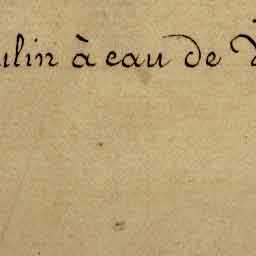 ulin à eau de